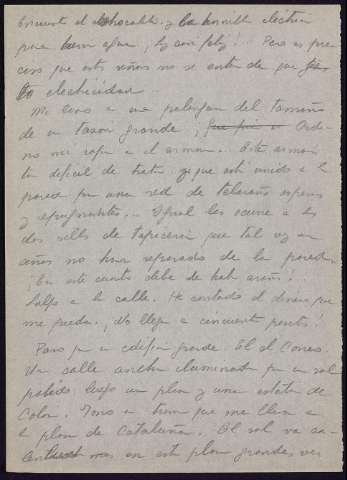 encuentro el chocolate y la hornilla eléctrica
para hacer algo ¡Soy casi feliz!... Pero es pre-
ciso que esta señora no se entere de que gasto
electricidad.
Me lavo a una palangana del tamaño
de un tazón grande, Orde-
no mi ropa en el armario. Este armario
es difícil de tratar ya que está unido a la
pared por una red de telarañas espesas
y repugnantes... Igual les ocurre a las
dos sillas de tapicería que tal vez en
años no han separado de la pared.
¡En este cuarto debe de haber arañas!
Salgo a la calle. He contado el dinero que
me queda. ¡No llega a cincuenta pesetas!
Paso por un edificio grande. El de Correos.
Una calle ancha iluminada por un sol
pálido luego una plaza y una estatua de
Colón. Tomo un tranvía que me lleva a
la plaza de Cataluña. El sol va ca-
lentando mas en esta plaza grande, veo